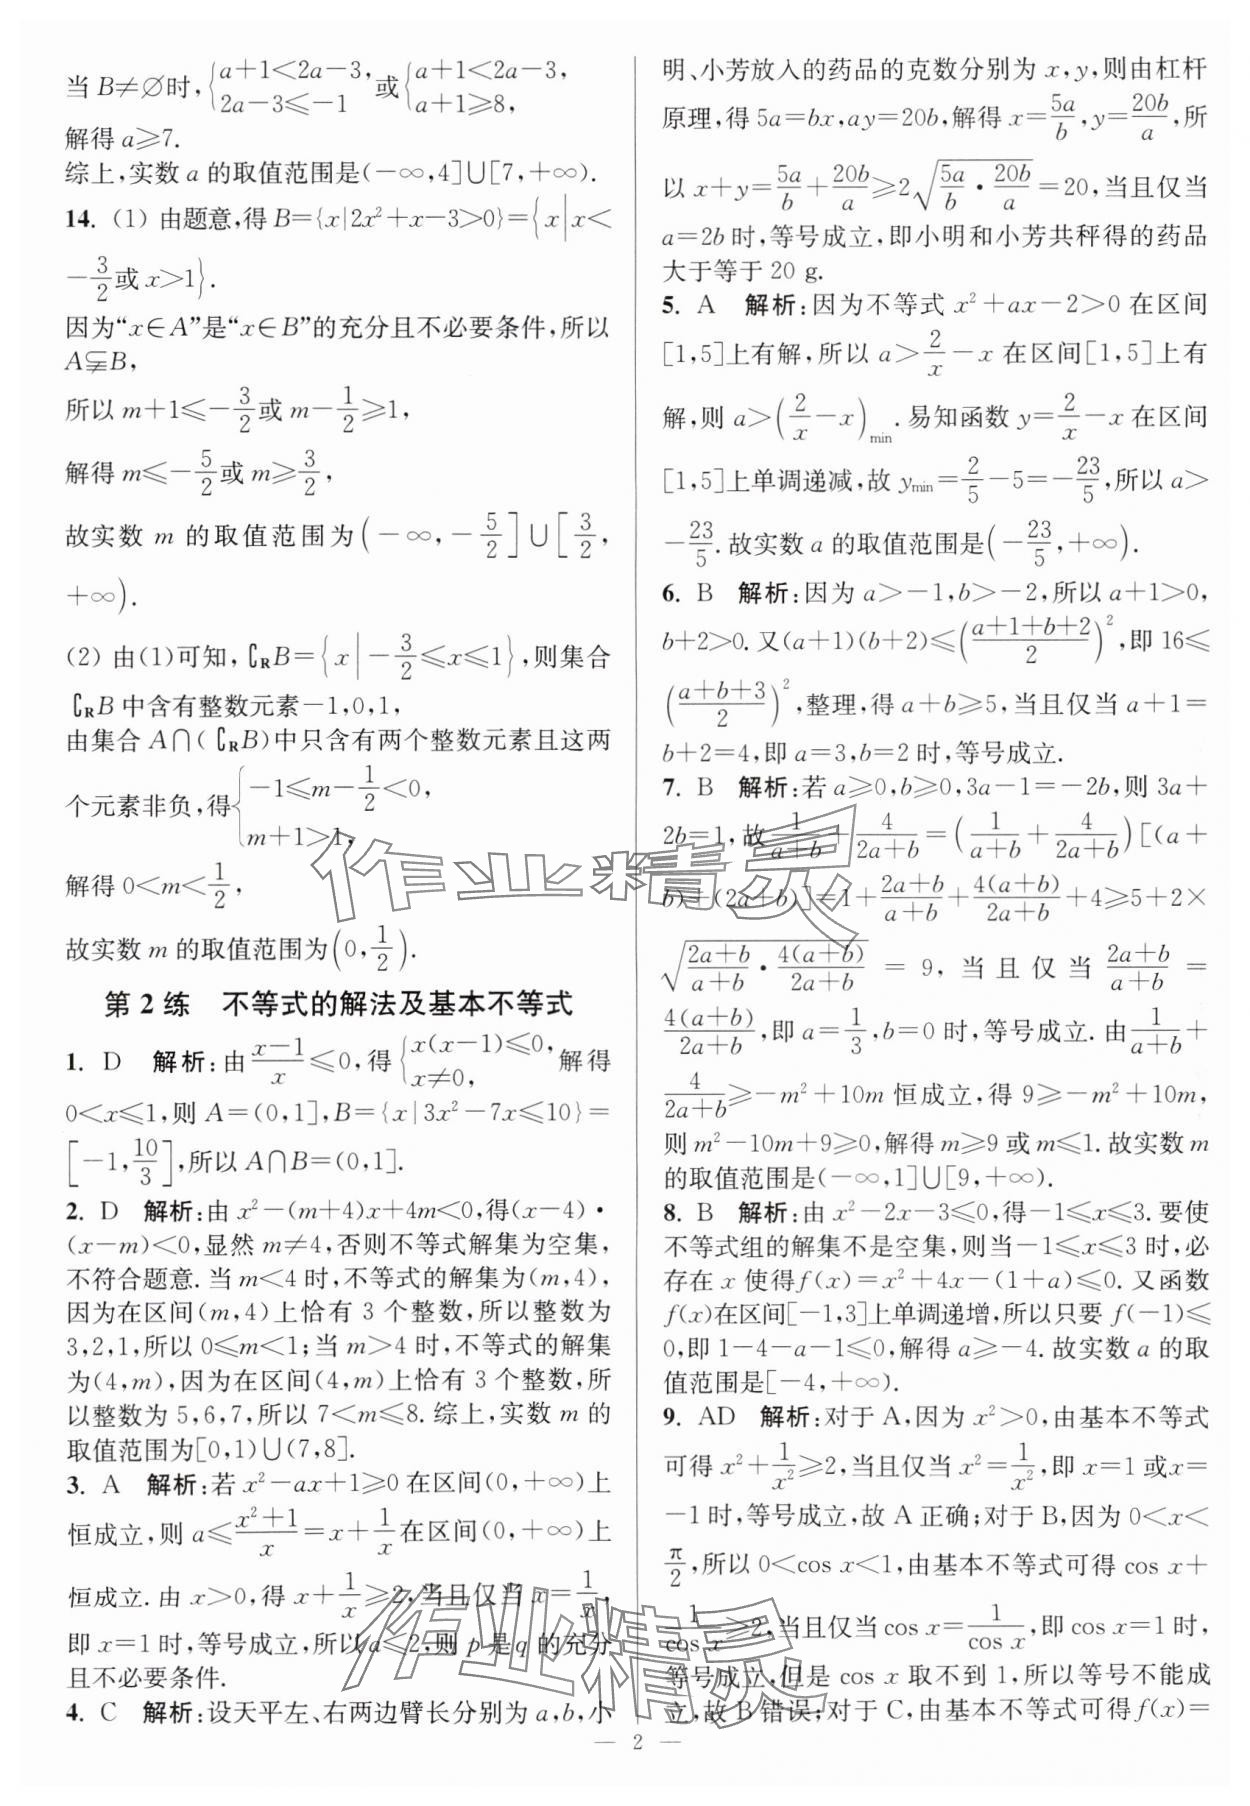 当 B≠∅时,{a+1<2a-3, 2a-3≤-1 或{a+1<2a-3, a+1≥8,
解得 a≥7.
综上,实数 a 的取值范围是(-∞,4]∪[7,+∞).
14. (1) 由题意,得 B={x|2x²+x-3>0}={x|x<
-3/2或 x>1}.
因为“x∈A”是“x∈B”的充分且不必要条件,所以
A⫋B,
所以 m+1≤-3/2或 m-1/2≥1,
解得 m≤-5/2或 m≥3/2,
故实数 m 的取值范围为(-∞,-5/2]∪[3/2,
+∞).
(2) 由(1)可知,∁RB={x|-3/2≤x≤1},则集合
∁RB 中含有整数元素-1,0,1,
由集合 A∩(∁RB)中只含有两个整数元素且这两
个元素非负,得{-1≤m-1/2<0, m+1>1,
解得 0<m<1/2,
故实数 m 的取值范围为(0,1/2).
第 2 练 不等式的解法及基本不等式
1. D 解析:由(x-1)/x≤0,得{x(x-1)≤0, x≠0, 解得
0<x≤1,则 A=(0,1],B={x|3x²-7x≤10}=
[-1,10/3],所以 A∩B=(0,1].
2. D 解析:由 x²-(m+4)x+4m<0,得(x-4)·
(x-m)<0,显然 m≠4,否则不等式解集为空集,
不符合题意. 当 m<4 时,不等式的解集为(m,4),
因为在区间(m,4)上恰有 3 个整数,所以整数为
3,2,1,所以 0≤m<1;当 m>4 时,不等式的解集
为(4,m),因为在区间(4,m)上恰有 3 个整数,所
以整数为 5,6,7,所以 7<m≤8. 综上,实数 m 的
取值范围为[0,1)∪(7,8].
3. A 解析:若 x²-ax+1≥0 在区间(0,+∞)上
恒成立,则 a≤(x²+1)/x=x+1/x在区间(0,+∞)上
恒成立. 由 x>0,得 x+1/x≥2,当且仅当 x=1/x,
即 x=1 时,等号成立,所以 a≤2,则 p 是 q 的充分
且不必要条件.
4. C 解析:设天平左、右两边臂长分别为 a,b,小
明、小芳放入的药品的克数分别为 x,y,则由杠杆
原理,得 5a=bx,ay=20b,解得 x=5a/b,y=20b/a,所
以 x+y=5a/b+20b/a≥2√(5a/b·20b/a)=20,当且仅当
a=2b 时,等号成立,即小明和小芳共秤得的药品
大于等于 20 g.
5. A 解析:因为不等式 x²+ax-2>0 在区间
[1,5]上有解,所以 a>2/x-x 在区间[1,5]上有
解,则 a>(2/x-x)min. 易知函数 y=2/x-x 在区间
[1,5]上单调递减,故 ymin=2/5-5=-23/5,所以 a>
-23/5. 故实数 a 的取值范围是(-23/5,+∞).
6. B 解析:因为 a>-1,b>-2,所以 a+1>0,
b+2>0. 又(a+1)(b+2)≤((a+1+b+2)/2)²,即 16≤
((a+b+3)/2)²,整理,得 a+b≥5,当且仅当 a+1=
b+2=4,即 a=3,b=2 时,等号成立.
7. B 解析:若 a≥0,b≥0,3a-1=-2b,则 3a+
2b=1,故1/(a+b)+4/(2a+b)=(1/(a+b)+4/(2a+b))[(a+
b)+(2a+b)]=1+(2a+b)/(a+b)+4(a+b)/(2a+b)+4≥5+2×
√((2a+b)/(a+b)·4(a+b)/(2a+b))=9,当且仅当(2a+b)/(a+b)=
4(a+b)/(2a+b),即 a=1/3,b=0 时,等号成立. 由1/(a+b)+
4/(2a+b)≥-m²+10m 恒成立,得 9≥-m²+10m,
则 m²-10m+9≥0,解得 m≥9 或 m≤1. 故实数 m
的取值范围是(-∞,1]∪[9,+∞).
8. B 解析:由 x²-2x-3≤0,得-1≤x≤3. 要使
不等式组的解集不是空集,则当-1≤x≤3 时,必
存在 x 使得f(x)=x²+4x-(1+a)≤0. 又函数
f(x)在区间[-1,3]上单调递增,所以只要 f(-1)≤
0,即 1-4-a-1≤0,解得 a≥-4. 故实数 a 的取
值范围是[-4,+∞).
9. AD 解析:对于 A,因为 x²>0,由基本不等式
可得 x²+1/x²≥2,当且仅当 x²=1/x²,即 x=1 或x=
-1 时,等号成立,故 A 正确;对于 B,因为 0<x<
π/2,所以 0<cos x<1,由基本不等式可得 cos x+
1/cos x≥2,当且仅当 cos x=1/cos x,即 cos x=1 时,
等号成立,但是 cos x 取不到 1,所以等号不能成
立,故 B 错误;对于 C,由基本不等式可得f(x)=
— 2 —
作业精灵
作业精灵